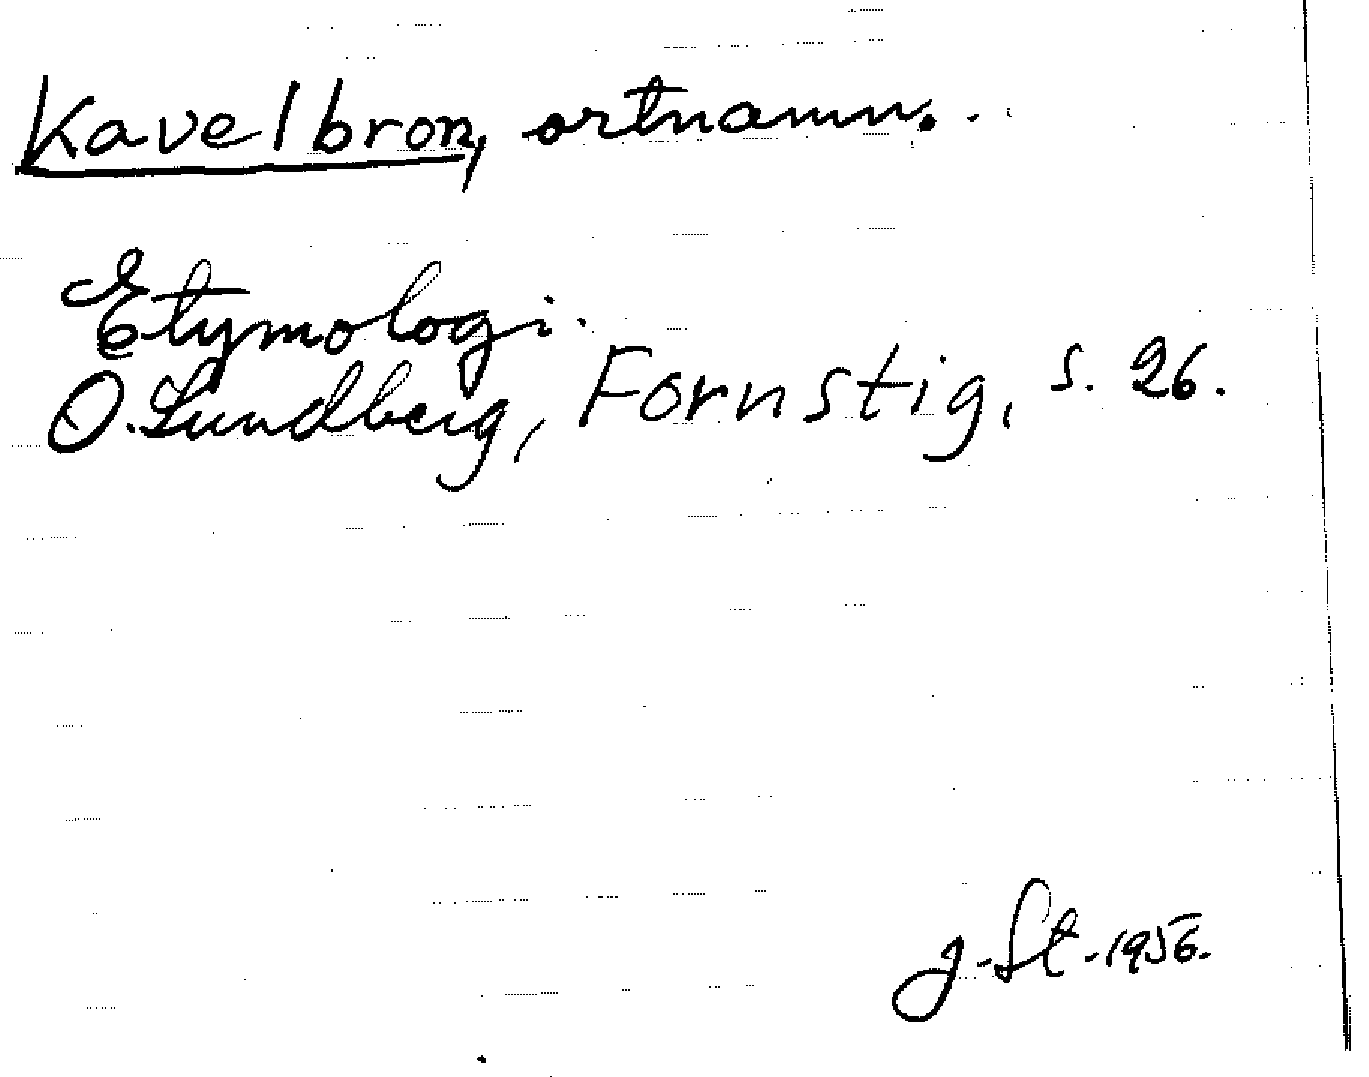 Kavelbron, ortnamn.
Etymologi.
O. Lundberg, Fornstig, s. 26.
J. St. 1956.